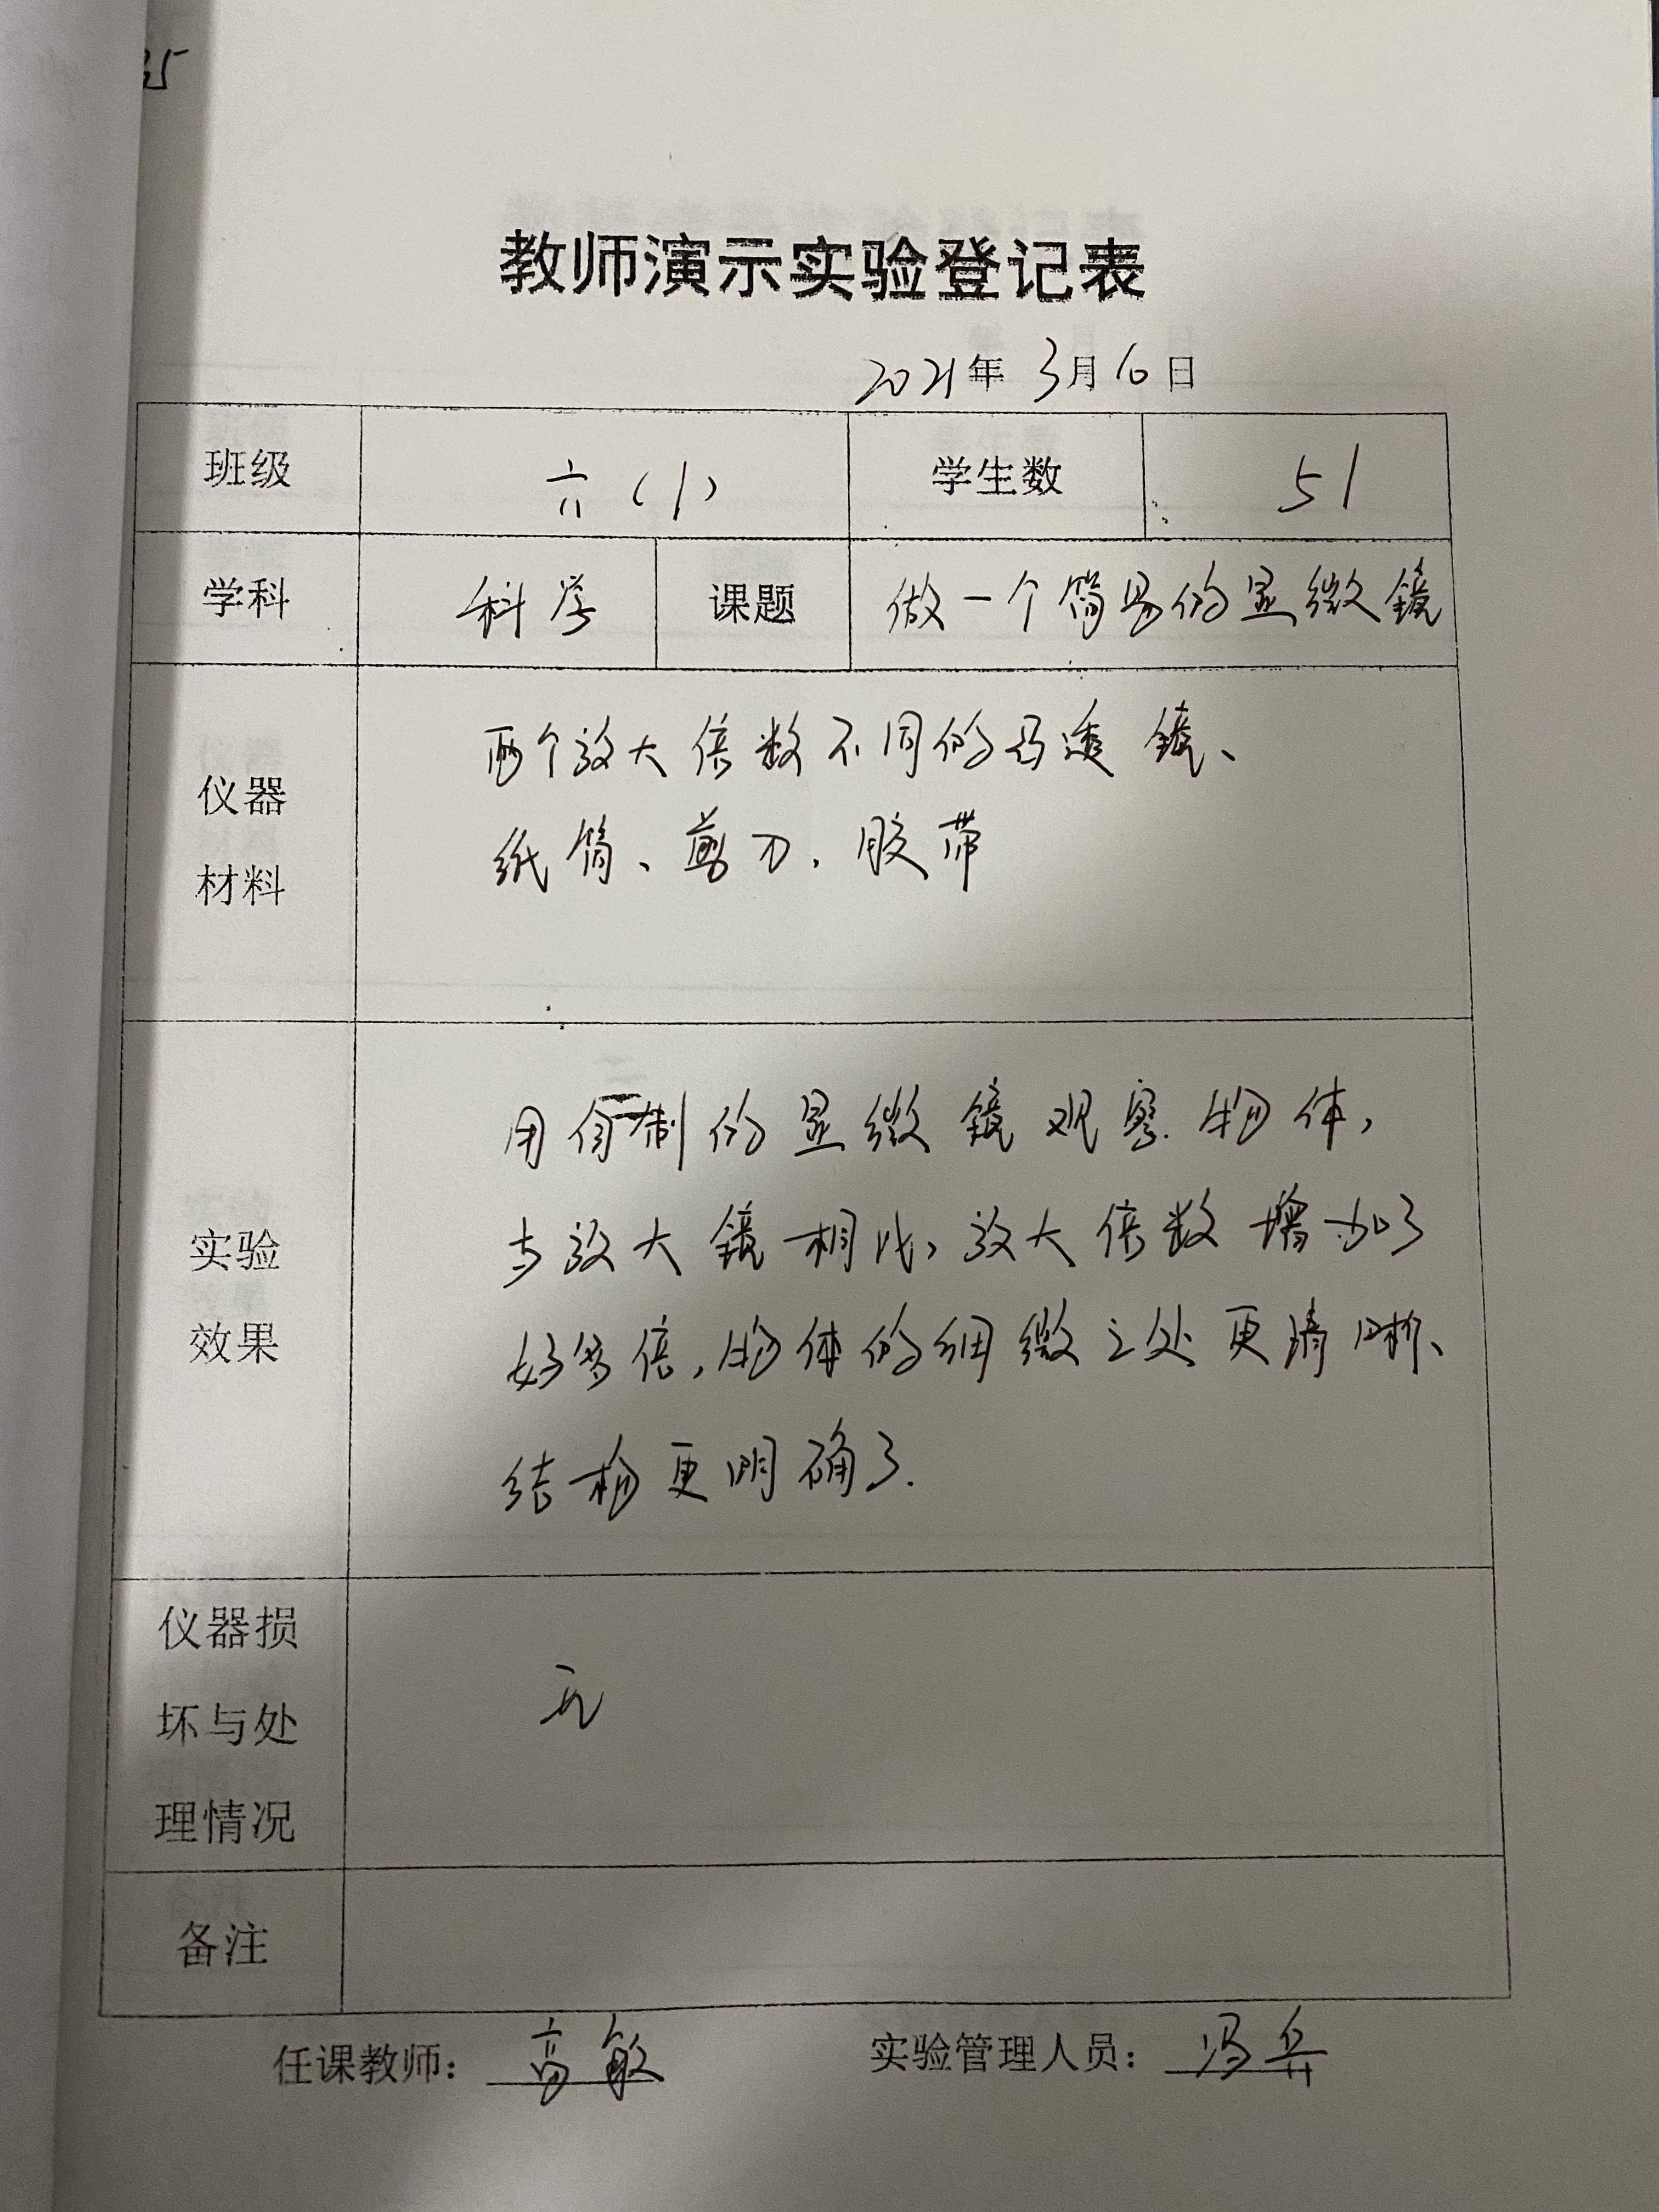 教师演示实验登记表
2021年 3月 6日
班级 六（1） 学生数 51
学科 科学 课题 做一个简易的显微镜
仪器
材料
两个放大倍数不同的凸透镜、
纸筒、剪刀、胶带
实验
效果
用自制的显微镜观察物体，
与放大镜相比，放大倍数增加了
好多倍，物体的细微之处更清晰、
结构更明确了.
仪器损
坏与处
理情况
无
备注
任课教师： 高敏 实验管理人员： 冯